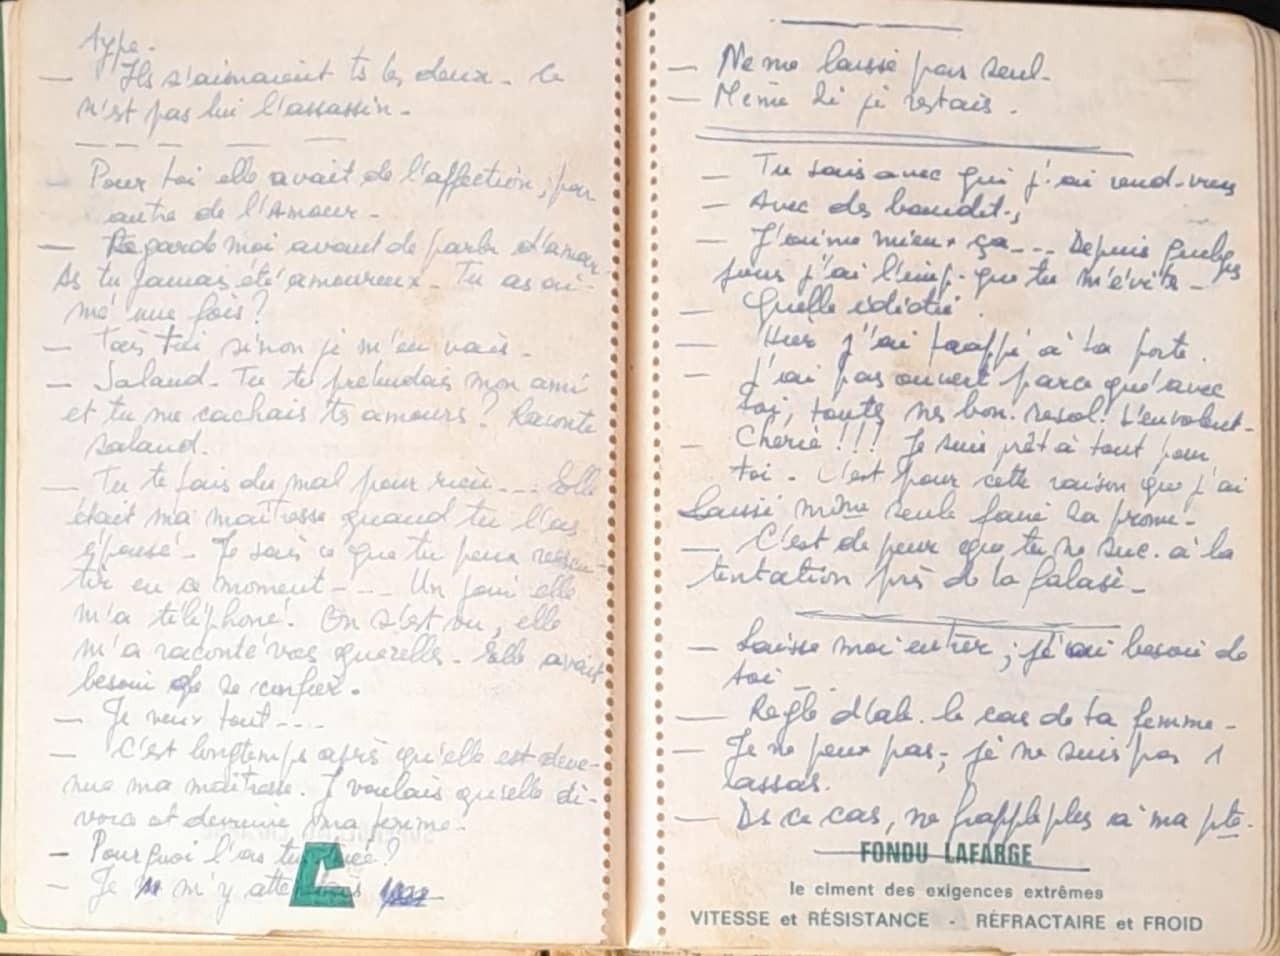 type.
— Ils s'aimaient ts les deux - Ce
n'est pas lui l'assassin -
— Pour toi elle avait de l'affection ; pour
autre de l'Amour -
— Regarde moi avant de parler d'amour
As tu jamais été amoureux - Tu as ai-
mé une fois ?
— Tais toi sinon je m'en vais -
— Salaud - Tu te prétendais mon ami
et tu me cachais ts amours ? Raconte
salaud.
— Tu te fais du mal pour rien --- Elle
était ma maîtresse quand tu l'as
épousé - Je sais ce que tu peux ressen-
tir en ce moment --- Un jour elle
m'a téléphoné. On s'est vu, elle
m'a raconté vos querelles - Elle avait
besoin de se confier.
— Je veux tout ----
— C'est longtemps après qu'elle est deve-
nue ma maîtresse. Je voulais quelle di-
vorce et devienne ma femme -
— Pourquoi l'as tu tuée ?
— Je m'y attendais
— Ne me laisse pas seul -
— Même si je restais .
— Tu sais avec qui j'ai rend-vous
— Avec des bandits
— J'aime mieux ça --- Depuis quelqs
jours j'ai l'imp. que tu m'évite -
— Quelle idiotie .
— Hier j'ai frappé à ta porte .
— J'ai pas ouvert parce qu'avec
toi, toutes mes bon. resol. s'envolent -
— Chérie !!! Je suis prêt à tout pour
toi - C'est pour cette raison que j'ai
laissé seule faire sa prome -
— C'est de peur que tu ne suc. à la
tentation près de la falaise -
— Laisse moi entrer ; j'ai besoin de
toi -
— Règle d'ab. le cas de ta femme -
— Je ne peux pas ; je ne suis pas 1
assas.
— Ds ce cas, ne frappe plus à ma pte.
FONDU LAFARGE
le ciment des exigences extrêmes
VITESSE et RÉSISTANCE - RÉFRACTAIRE et FROID